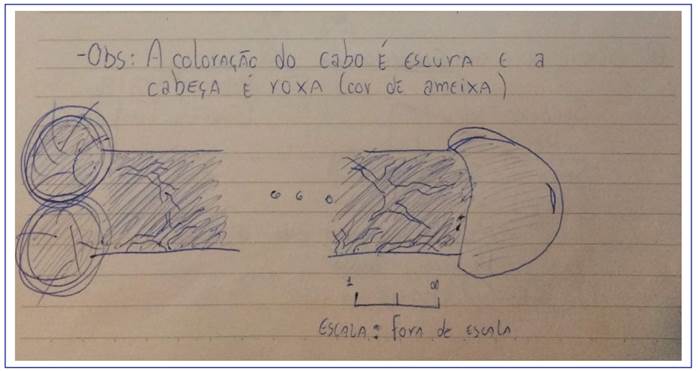 -Obs: A coloração do cabo É escura e a
cabeça É roxa (cor de ameixa)
1 ∞
Escala: Fora de escala